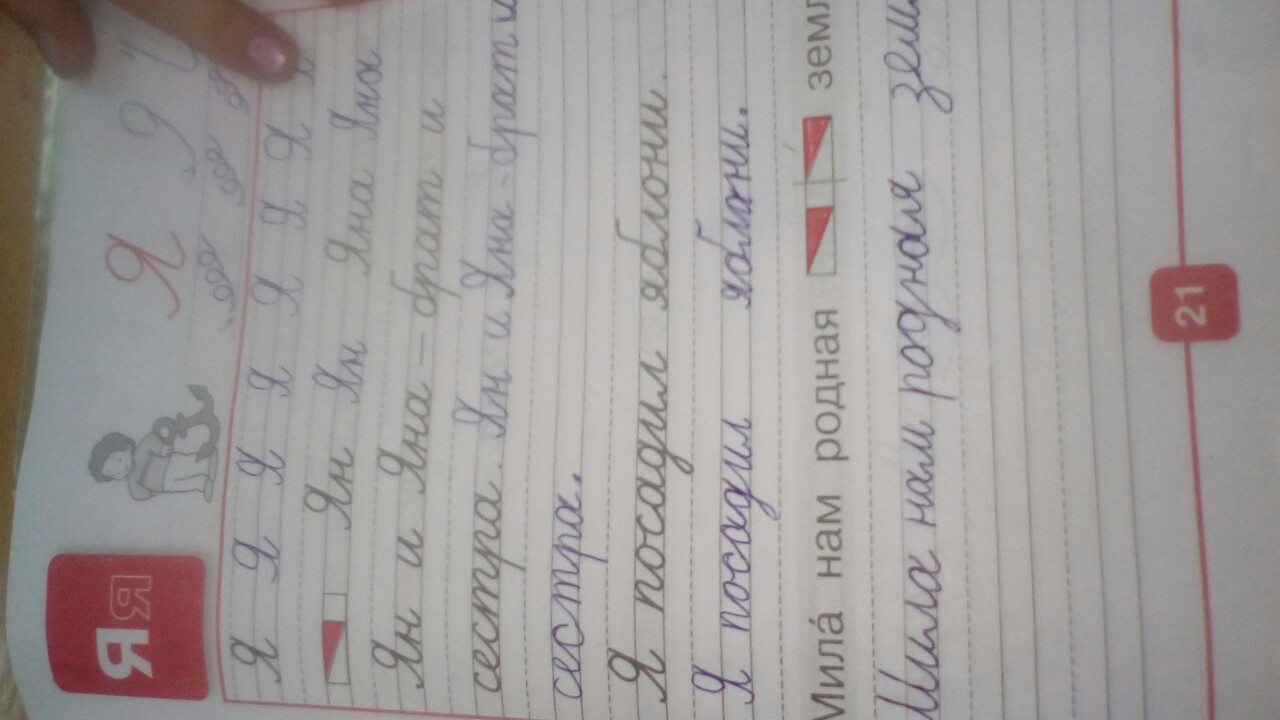 Яя
Я Я
Я Я Я Я Я Я Я Я
Ян Ян Яна Яна
Ян и Яна – брат и
сестра. Ян и Яна - брат и
сестра.
Я посадил яблони.
Я посадил яблони.
Мила́ нам родная
Мила нам родная
21